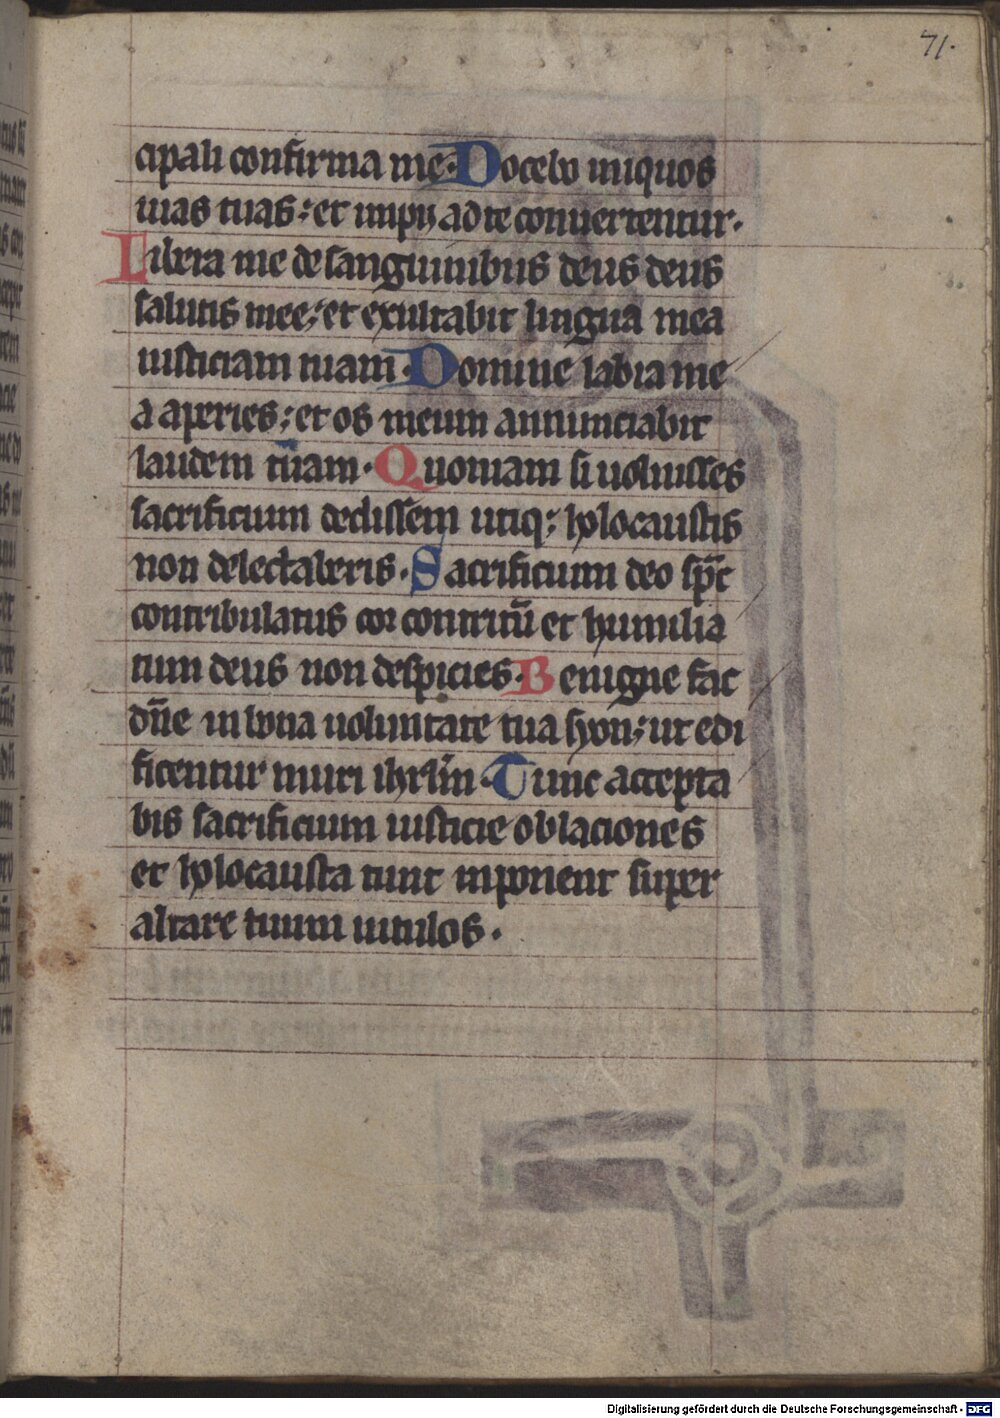 71.
cipali confirma me. Docebo iniquos
uias tuas: et impij ad te conuertentur.
Libera me de sanguinibus deus deus
salutis mee: et exultabit lingua mea
iusticiam tuam. Domine labia me
a aperies: et os meum annunciabit
laudem tuam. Quoniam si uoluisses
sacrificium dedissem utiq; holocaustis
non delectaberis. Sacrificium deo sp̄c
contribulatus cor contritū et humilia
tum deus non despicies. Benigne fac
dn̄e in bona uoluntate tua syon: ut edi
ficentur muri ihrl̄m. Tunc accepta
bis sacrificium iusticie oblaciones
et holocausta tunc inponent super
altare tuum uitulos.
Digitalisierung gefördert durch die Deutsche Forschungsgemeinschaft - DFG